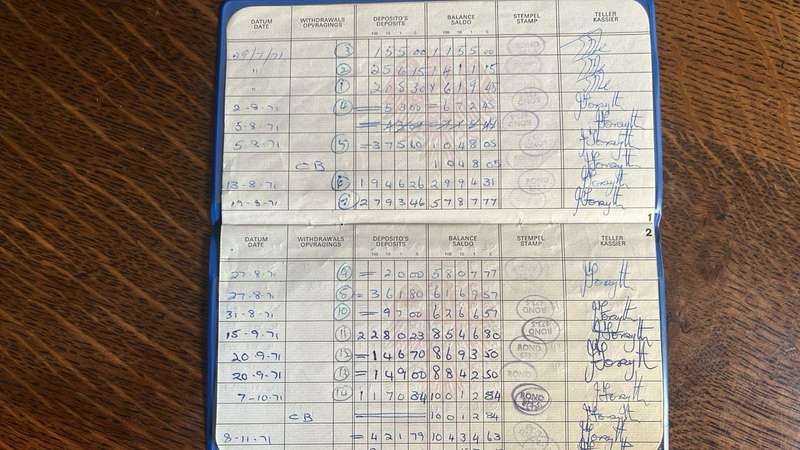 DATUM DATE WITHDRAWALS OPVRAGINGS DEPOSITO'S DEPOSITS BALANCE SALDO STEMPEL STAMP TELLER KASSIER
29/7/71 3 155 00 1155 00
" 2 256 15 1411 15
" 1
2-8-71 4 = 53 00 = 672 45 Forsyth
5-8-71 Forsyth
5-8-71 5 = 375 60 1048 05 Forsyth
CB 1048 05 Forsyth
13-8-71 6 1946 26 2994 31 BOND Forsyth
19-8-71 7 2793 46 5787 77 Forsyth
1
2
DATUM DATE WITHDRAWALS OPVRAGINGS DEPOSITO'S DEPOSITS BALANCE SALDO STEMPEL STAMP TELLER KASSIER
27-8-71 = 20 00 5807 77
27-8-71 8 = 361 80 6169 57 Forsyth
31-8-71 10 = 97 00 6266 57 BOND Forsyth
15-9-71 11 2280 23 8546 80 BOND Forsyth
20-9-71 12 = 146 70 8693 50 BOND Forsyth
20-9-71 13 = 149 00 8842 50 BOND Forsyth
7-10-71 14 1170 34 10012 84 BOND Forsyth
CB 10012 84 Forsyth
8-11-71 = 421 79 10434 63 Forsyth